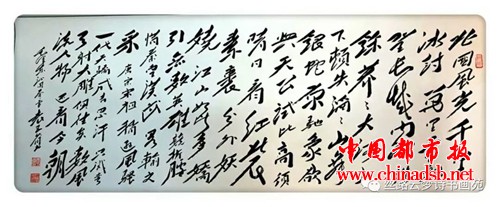 北国风光千
冰封万里雪
望长城内
馀莽莽大河
下顿失滔滔山舞
银蛇原驰象欲
与天公试比高须
晴日看红装
素裹分外妖
娆江山如此多娇
引无数英雄竞折腰
惜秦皇汉武略输文
采唐宗宋祖稍逊风骚
一代天骄成吉思汗只识弯
弓射大雕俱往矣数风
流人物还看今朝
中國都市报
www.chinadsb.net
丝路云梦诗书画苑